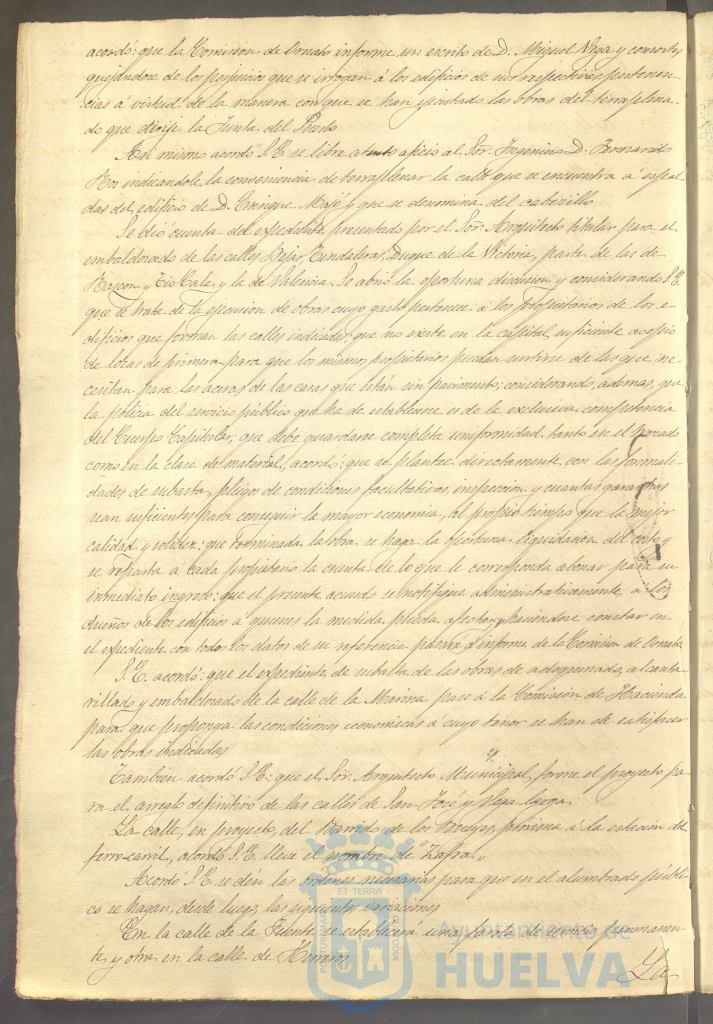 acordó: que la Comisión de Ornato informe un escrito de D. Miguel Vega y consorte,
quejándose de los perjuicios que se irrogan á los edificios de sus respectivas pertenen-
cias á virtud de la manera con que se han ejecutado las obras del terraplena-
do que dirije la Junta del Puerto
Asi mismo acordó S.E. se libre atento oficio al Sor. Ingeniero D. Fernando
Ros indicandole la conveniencia de terraplenar la calle que se encuentra á espal-
das del edificio de D. Enrique y que se denomina del cabecillo
Se dió cuenta del expediente presentado por el Sor. Arquitecto titular para el
embaldosado de las calles Bejar, Tendaleras, Duque de la Victoria, parte de las de
Rascon y Tio Cala y la de Valencia. Se abrió la oportuna discusion y considerando S.E.
que se trata de la ejecucion de obras cuyo gasto pertenece á los propietarios de los e-
dificios que forman las calles indicadas; que no existe en la capital suficiente acopio
de lozas de primera para que los mismos propietarios puedan surtirse de las que ne-
cesitan para las aceras de las casas que están sin pavimento; considerando, ademas, que
la policia del servicio público que ha de establecerse es de la exclusiva competencia
del Cuerpo Capitular, que debe guardarse completa uniformidad tanto en el
como en la clase de material, acordó: que se plantee directamente, con las formali-
dades de subasta, pliegos de condiciones facultativas, inspeccion y cuantas garantias
sean suficientes para conseguir la mayor economia, al propio tiempo que la mejor
calidad y solidez: que terminada la obra se haga la oportuna liquidacion del costo y
se reparta á cada propietario la cuenta de lo que le corresponda abonar para su
inmediato ingreso: que el presente acuerdo se notifique administrativamente á los
dueños de los edificios á quienes la medida pueda afectar, y haciendose constar en
el expediente con todos los datos de su referencia á informe de la Comision de Ornato
S.E. acordó: que el expediente de subasta de las obras de adoquinado, alcanta-
rillado y embaldosado de la calle de la Marina pase á la Comisión de Hacienda
para que proponga las condiciones economicas á cuyo tenor se han de satisfacer
las obras indicadas
Tambien acordó S.E.: que el Sor. Arquitecto Municipal, forme el proyecto pa-
ra el arreglo definitivo de las calles de San José y Vega larga
La calle, en proyecto, del Barrido de los , próxima á la estacion del
ferro-carril, acordó S.E. lleve el nombre de "Zafra"
Acordó S.E. se dén las órdenes necesarias para que en el alumbrado públi-
co se hagan, desde luego, las siguientes variaciones
En la calle de la Fuente se establecerá una farola de servicio permanen-
te y otra en la calle de
La
PORTUS MARIS
ET TERRÆ
CUSTODIA
Ayuntamiento de
HUELVA